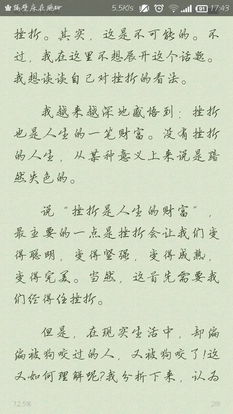 5.5K/s 17:43
挫折。其实，这是不可能的。不
过，我在这里不想展开这个话题。
我想谈谈自己对挫折的看法。
我越来越深地感悟到：挫折
也是人生的一笔财富。没有挫折
的人生，从某种意义上来说是黯
然失色的。
说“挫折是人生的财富”，
最主要的一点是挫折会让我们变
得聪明，变得坚强，变得成熟，
变得完美。当然，这首先需要我
们经得住挫折。
但是，在现实生活中，却偏
偏被狗咬过的人，又被狗咬了！这
又如何理解呢？我分析下来，认为
12.5%